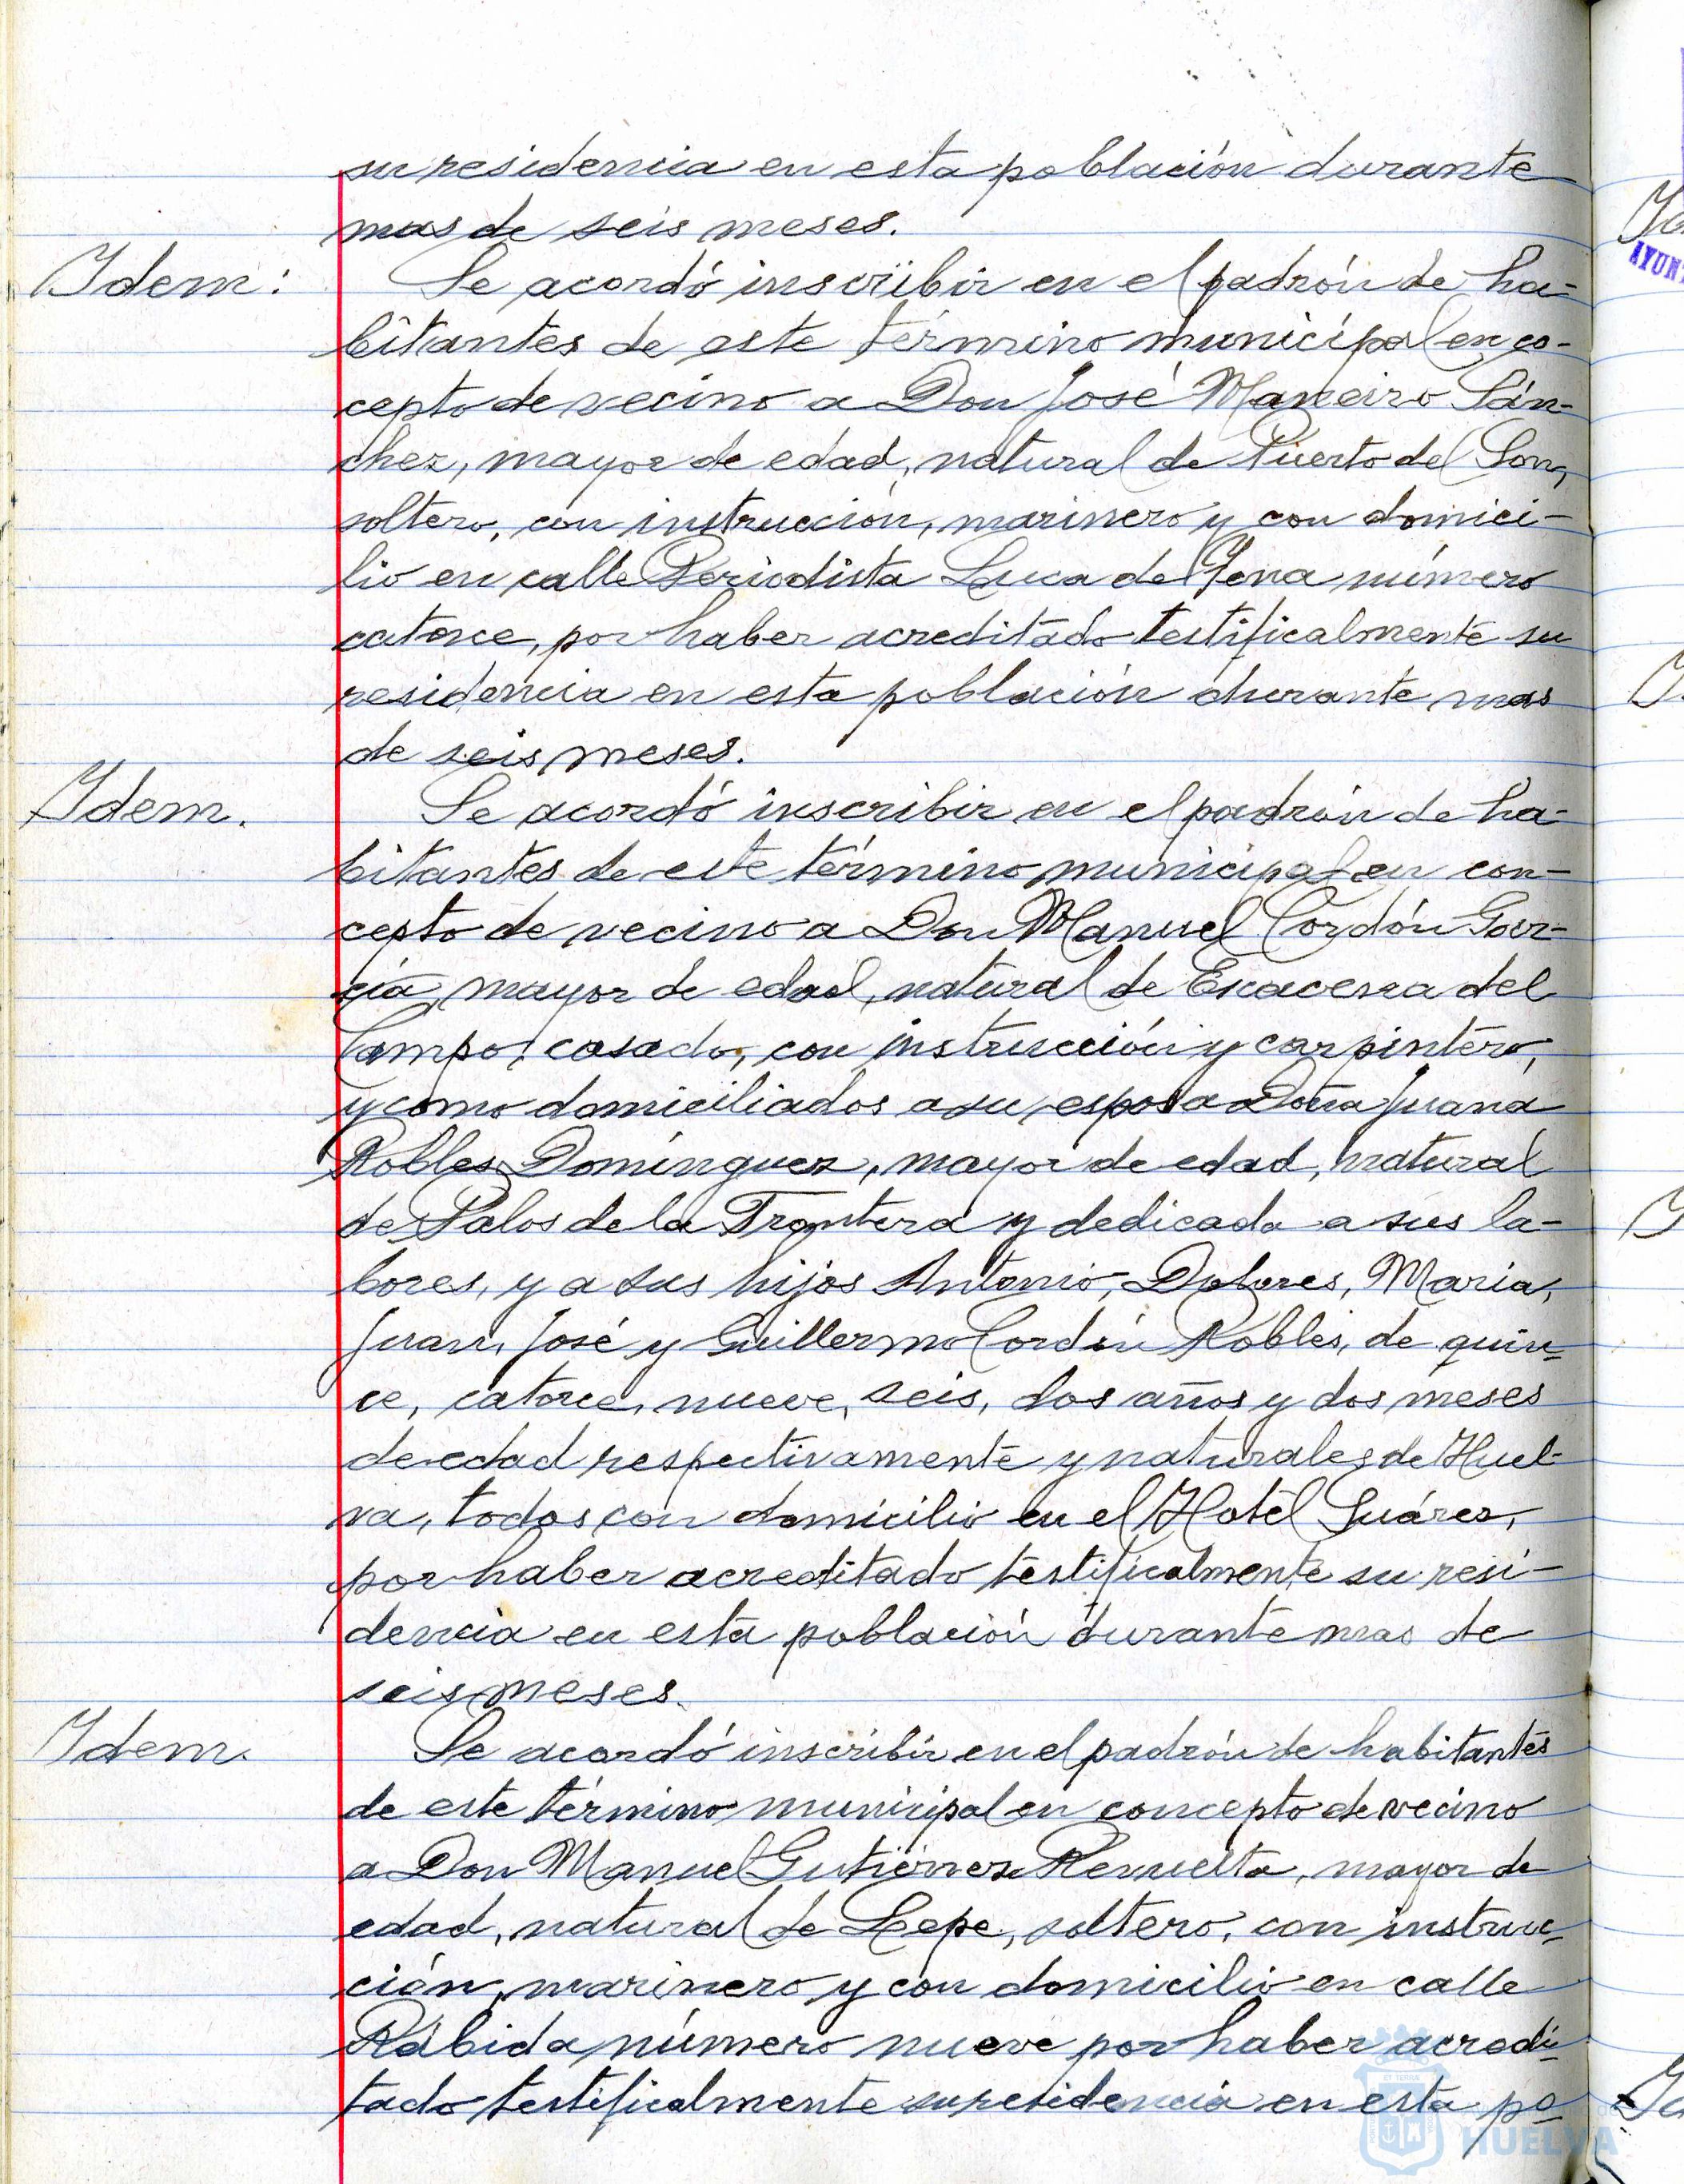 su residencia en esta población durante
mas de seis meses.
Idem:
Se acordó inscribir en el padrón de ha-
bitantes de este término municipal en co-
cepto de vecino a Don José Maneiro Sán-
chez, mayor de edad, natural de Puerto del Son,
soltero, con instrucción, marinero y con domici-
lio en calle Periodista Luca de Tena número
catorce, por haber acreditado testificalmente su
residencia en esta población durante mas
de seis meses.
Idem.
Se acordó inscribir en el padrón de ha-
bitantes de este término municipal en con-
cepto de vecino a Don Manuel Cordón Gar-
cía, mayor de edad, natural de Escacena del
Campo, casado, con instrucción y carpintero,
y como domiciliados a su esposa Doña Juana
Robles Domínguez, mayor de edad, natural
de Palos de la Frontera y dedicada a sus la-
bores, y a sus hijos Antonio, Dolores, Maria,
Juan, José y Guillermo Cordón Robles, de quin-
ce, catorce, nueve, seis, dos años y dos meses
de edad respectivamente y naturales de Huel-
va, todos con domicilio en el Hotel Suárez,
por haber acreditado testificalmente su resi-
dencia en esta población durante mas de
seis meses.
Idem.
Se acordó inscribir en el padrón de habitantes
de este término municipal en concepto de vecino
a Don Manuel Gutiérrez Revuelta, mayor de
edad, natural de Lepe, soltero, con instruc-
ción, marinero y con domicilio en calle
Rábida número nueve por haber acredi-
tado testificalmente su residencia en esta po-
HUELVA
AYUN